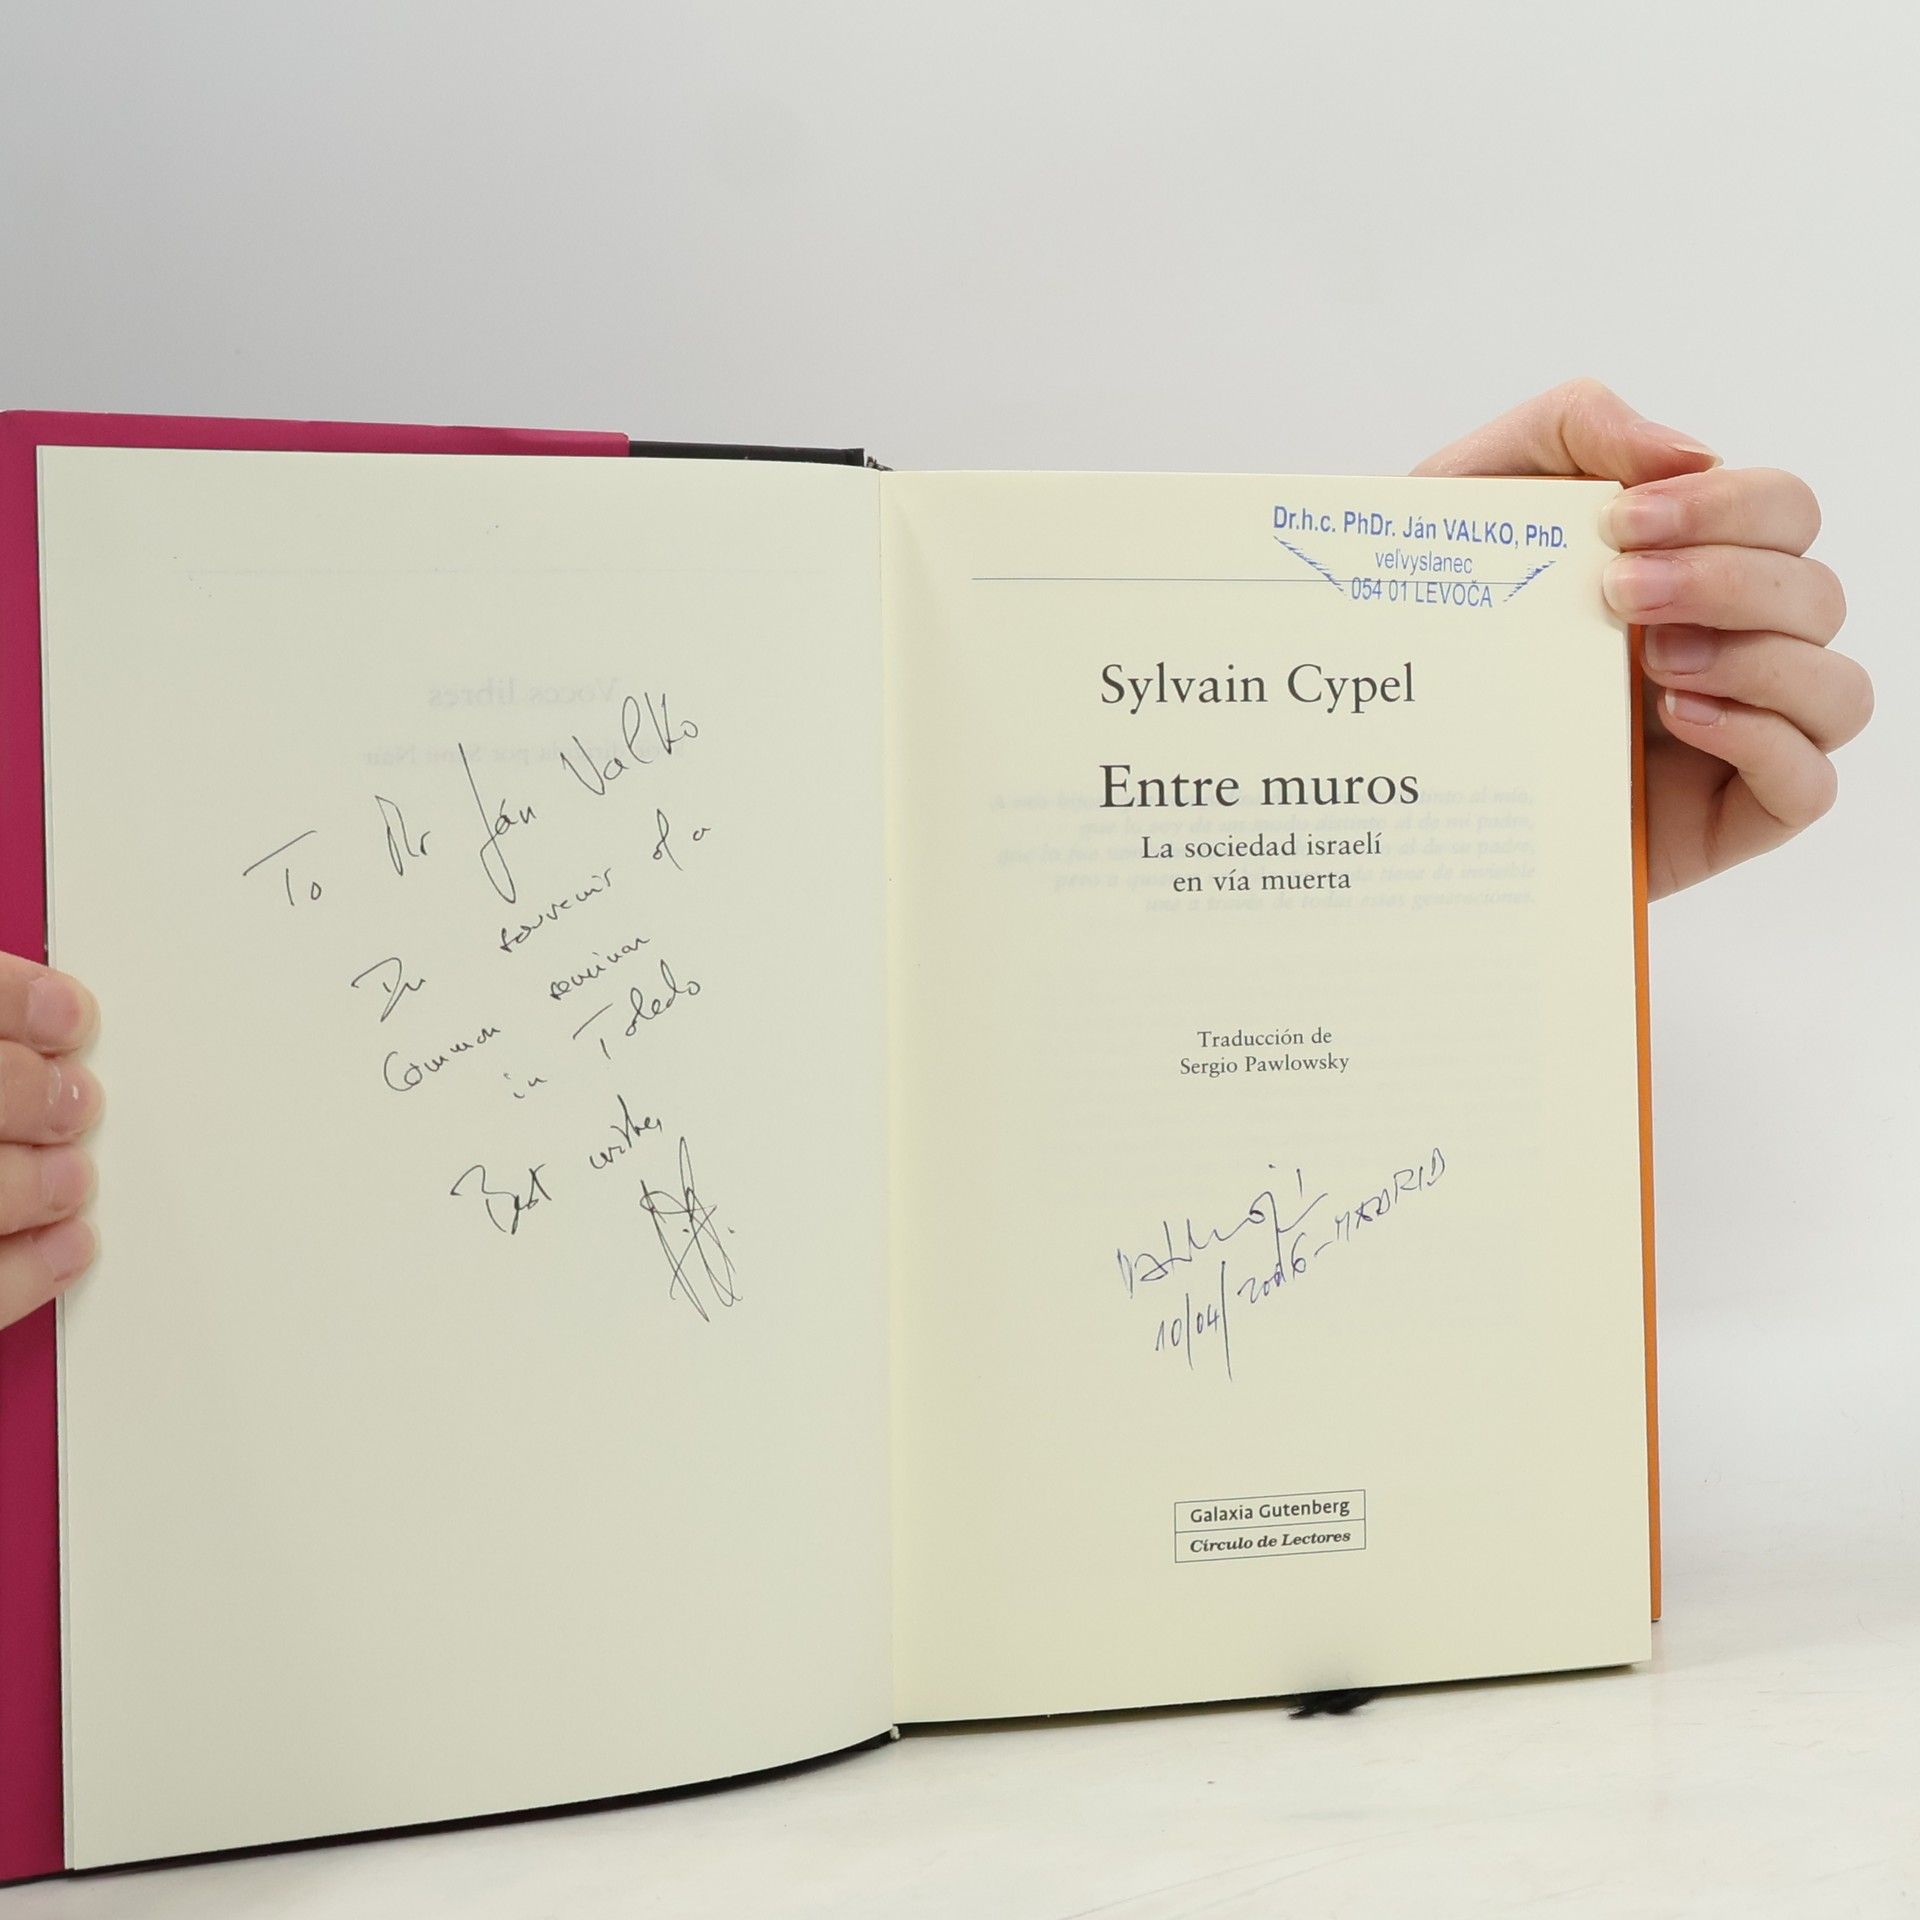 To Mr Ján Valko
In souvenir of a
common seminar
in Toledo
Best wishes
Dr.h.c. PhDr. Ján VALKO, PhD.
veľvyslanec
054 01 LEVOČA
Sylvain Cypel
Entre muros
La sociedad israelí
en vía muerta
Traducción de
Sergio Pawlowsky
10/04/2006-MADRID
Galaxia Gutenberg
Círculo de Lectores